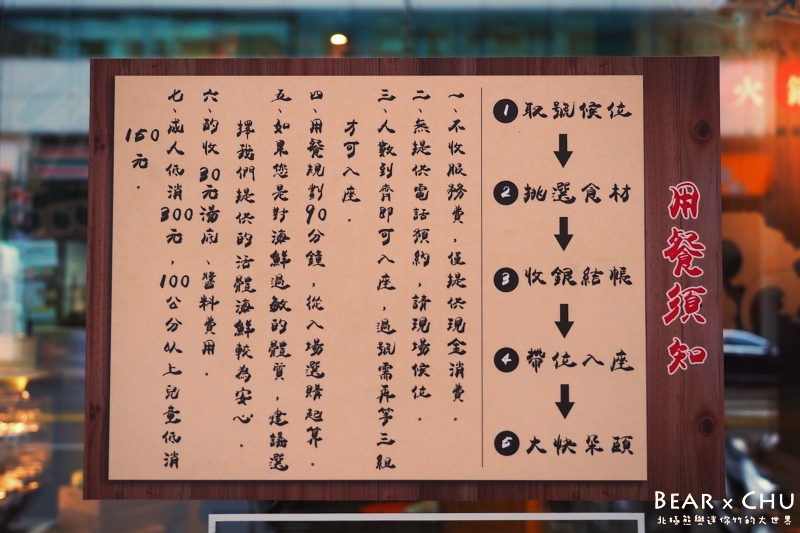 用餐須知
1 取號候位
2 挑選食材
3 收銀結帳
4 帶位入座
5 大快朵頤
一、不收服務費,僅提供現金消費.
二、無提供電話預約,請現場候位.
三、人數到齊即可入座,過號需再等三組
才可入座.
四、用餐規劃90分鐘,從入場選購起算.
五、如果您是對海鮮過敏的體質,建議選
擇我們提供的活體海鮮較為安心.
六、酌收30元湯底、醬料費用.
七、成人低消300元,100公分以上兒童低消
150元.
火
BEAR x CHU
北極熊與迷你竹的大世界